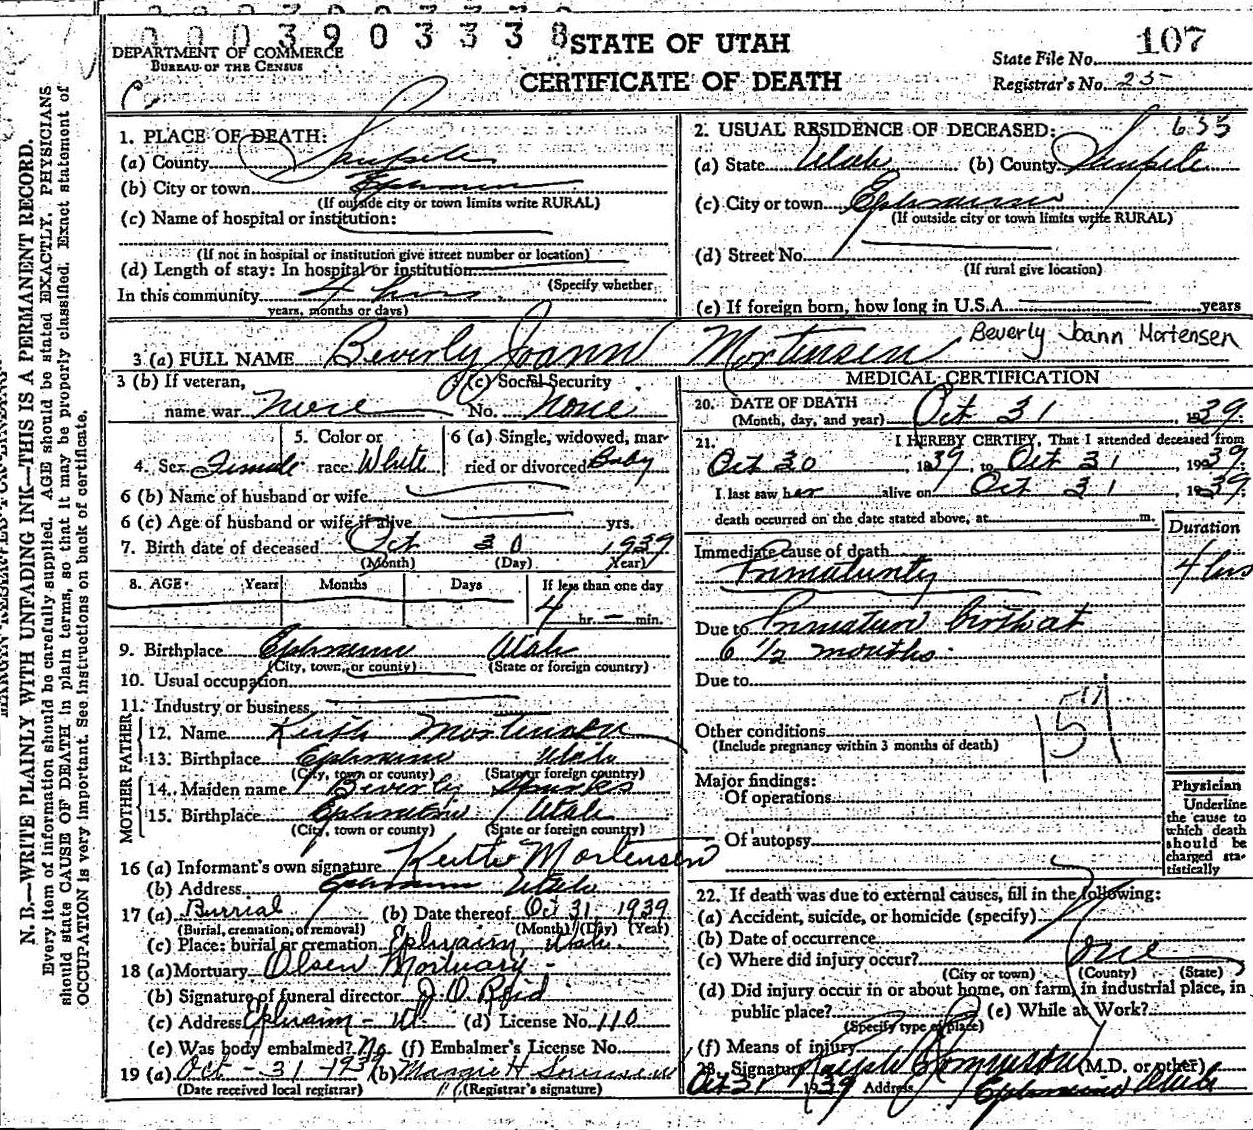 0003903338
STATE OF UTAH
CERTIFICATE OF DEATH
DEPARTMENT OF COMMERCE
BUREAU OF THE CENSUS
State File No. 107
Registrar's No. 25
N. B.—WRITE PLAINLY WITH UNFADING INK—THIS IS A PERMANENT RECORD.
Every item of information should be carefully supplied. AGE should be stated EXACTLY. PHYSICIANS
should state CAUSE OF DEATH in plain terms, so that it may be properly classified. Exact statement of
OCCUPATION is very important. See instructions on back of certificate.
1. PLACE OF DEATH:
(a) County Sanpete
(b) City or town Ephraim
(If outside city or town limits write RURAL)
(c) Name of hospital or institution:
(If not in hospital or institution give street number or location)
(d) Length of stay: In hospital or institution
(Specify whether
In this community 4 hours.
years, months or days)
2. USUAL RESIDENCE OF DECEASED: 655
(a) State Utah (b) County Sanpete
(c) City or town Ephraim
(If outside city or town limits write RURAL)
(d) Street No.
(If rural give location)
(e) If foreign born, how long in U.S.A. years
3 (a) FULL NAME Beverly Joann Mortensen Beverly Joann Mortensen
3 (b) If veteran,
name war None
3 (c) Social Security
No. None
4. Sex Female
5. Color or
race White
6 (a) Single, widowed, mar-
ried or divorced Baby
6 (b) Name of husband or wife
6 (c) Age of husband or wife if alive yrs.
7. Birth date of deceased Oct 30 1939
(Month) (Day) (Year)
8. AGE: Years Months Days If less than one day
4 hr. — min.
9. Birthplace Ephraim Utah
(City, town, or county) (State or foreign country)
10. Usual occupation
11. Industry or business
FATHER
12. Name Keith Mortensen
13. Birthplace Ephraim Utah
(City, town or county) (State or foreign country)
MOTHER
14. Maiden name Beverly Sparks
15. Birthplace Ephraim Utah
(City, town or county) (State or foreign country)
16 (a) Informant's own signature Keith Mortensen
(b) Address Ephraim Utah
17 (a) Burrial (b) Date thereof Oct 31 1939
(Burial, cremation, or removal) (Month) (Day) (Year)
(c) Place: burial or cremation Ephraim Utah.
18 (a) Mortuary Olsen Mortuary -
(b) Signature of funeral director J. O. Reid
(c) Address Ephraim - Ut. (d) License No. 110
(e) Was body embalmed? No (f) Embalmer's License No.
19 (a) Oct - 31 - 1939 (b) Margie H
(Date received local registrar) (Registrar's signature)
MEDICAL CERTIFICATION
20. DATE OF DEATH
(Month, day, and year) Oct 31 1939.
21. I HEREBY CERTIFY, That I attended deceased from
Oct 30, 1939, to Oct 31, 1939.
I last saw her alive on Oct 31, 1939.
death occurred on the date stated above, at m.
Duration
Immediate cause of death
Prematurity 4 hrs
Due to Premature birth at
6 1/2 months.
Due to
Other conditions
(Include pregnancy within 3 months of death)
Major findings:
Of operations
Of autopsy
Physician
Underline
the cause to
which death
should be
charged sta-
tistically
22. If death was due to external causes, fill in the following:
(a) Accident, suicide, or homicide (specify)
(b) Date of occurrence
(c) Where did injury occur?
(City or town) (County) (State)
(d) Did injury occur in or about home, on farm, in industrial place, in
public place? (e) While at Work?
(Specify type of place)
(f) Means of injury
23. Signature (M.D. or other)
Oct 31 1939 Address Ephraim Utah